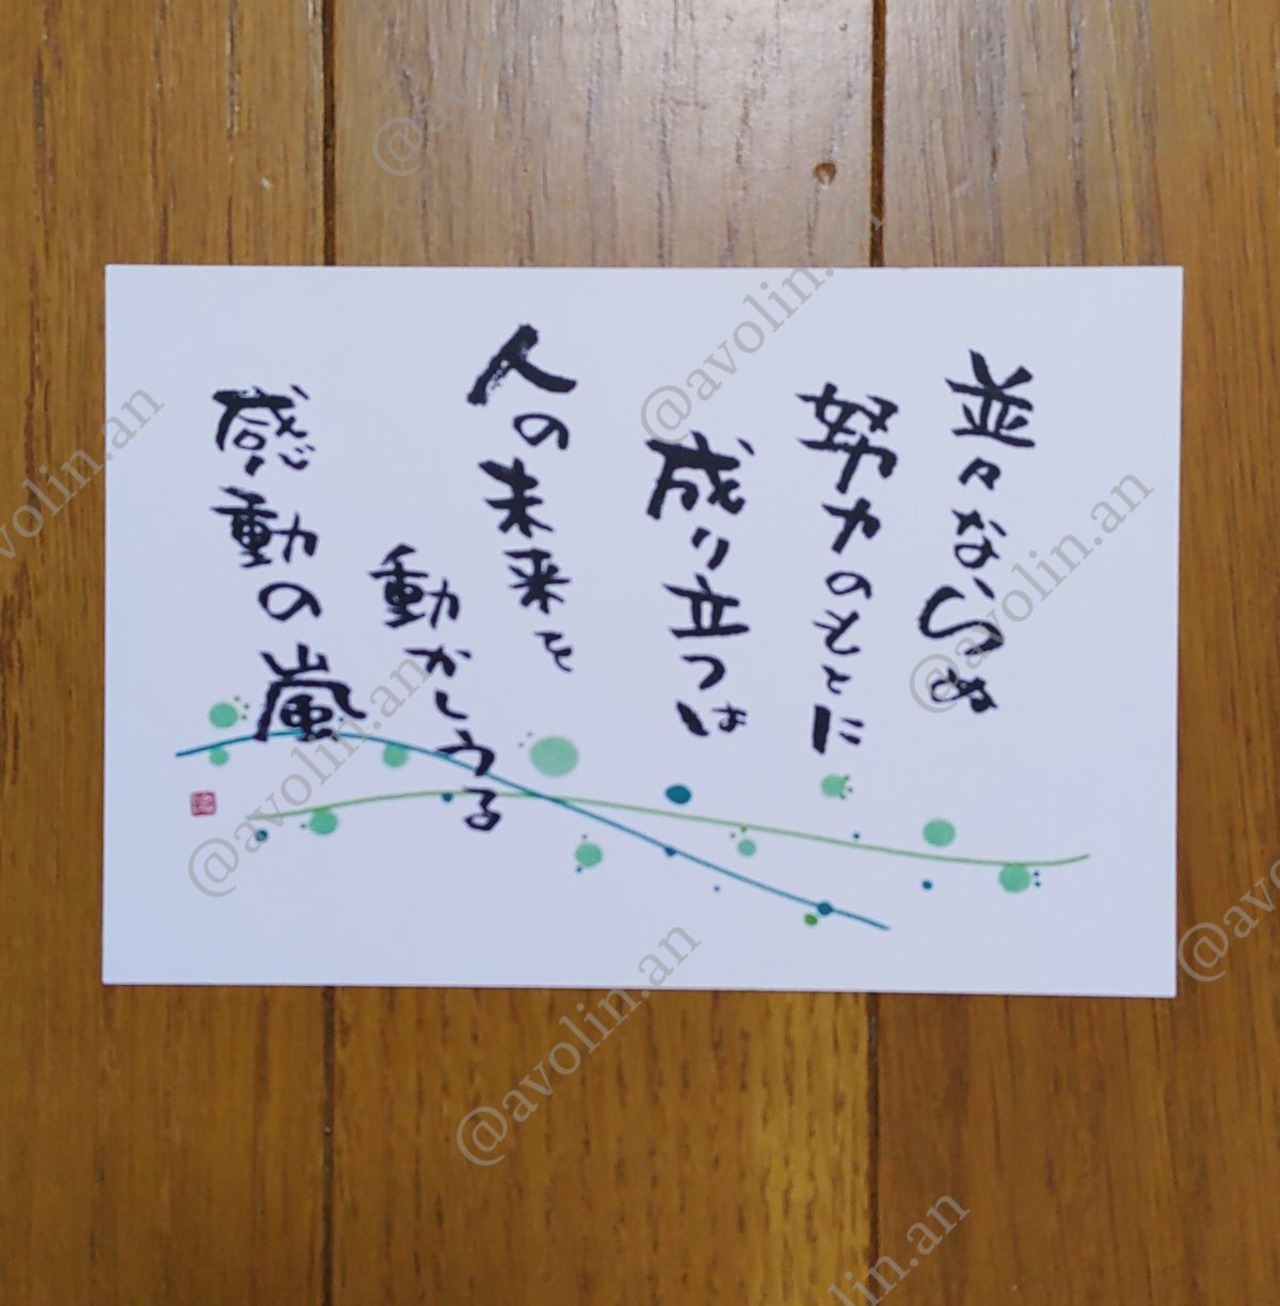 並々ならぬ
努力のもとに
成り立つは
人の未来を
動かしうる
感動の嵐
@avolin.an
@avolin.an
@avolin.an
@avolin.an
@avolin.an